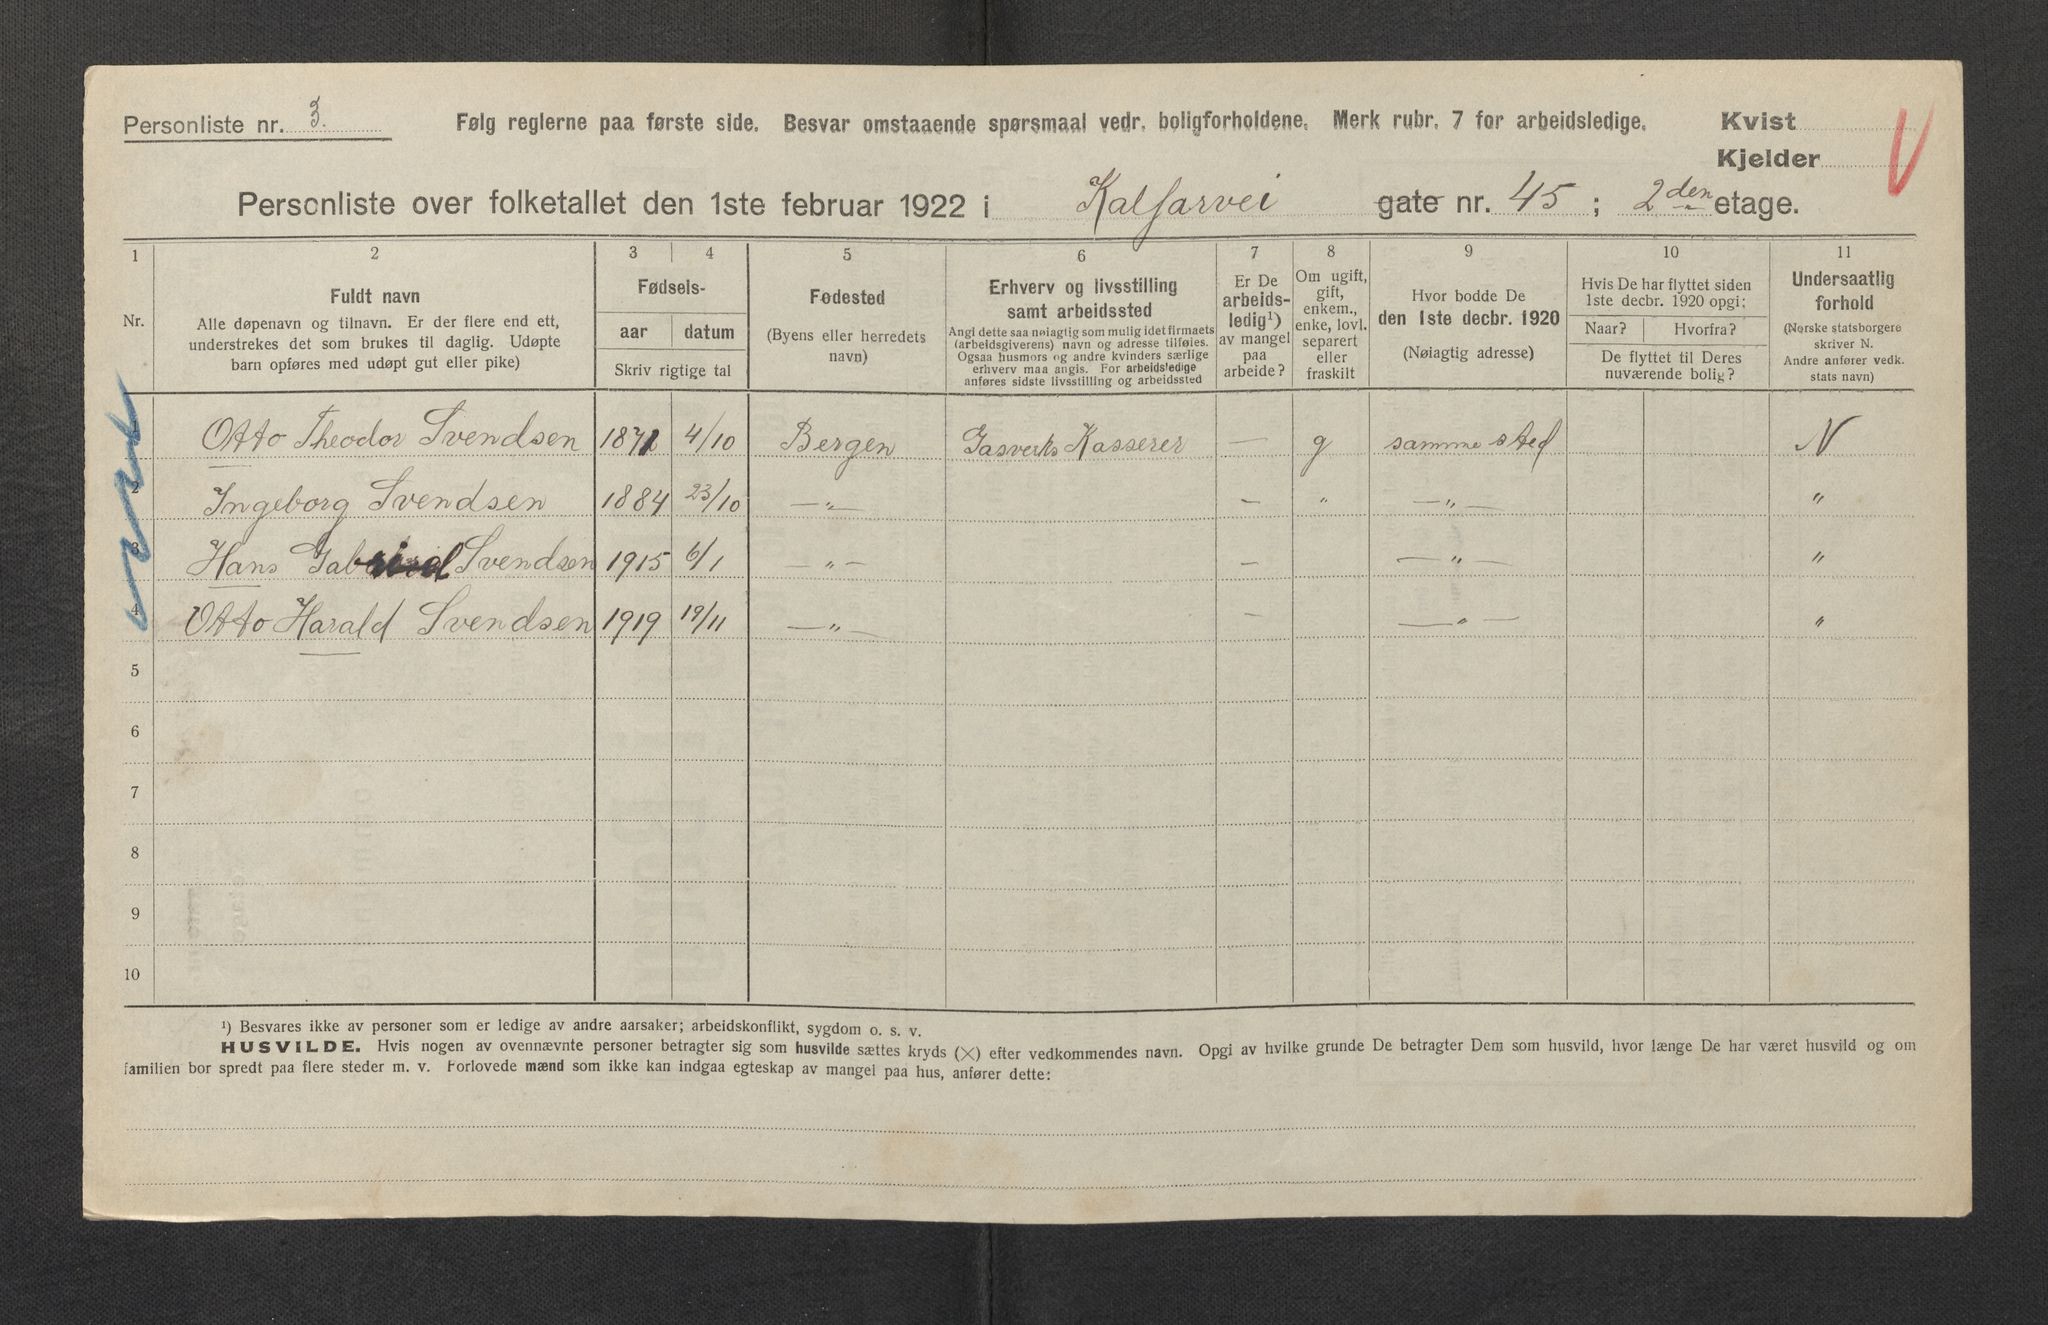 Personliste nr. 3.
Følg reglerne paa første side. Besvar omstaaende spørsmaal vedr. boligforholdene. Merk rubr. 7 for arbeidsledige.
Kvist
Kjelder
Personliste over folketallet den 1ste februar 1922 i Kalfarvei gate nr. 45 ; 2den etage.
1 2 3 4 5 6 7 8 9 10 11
Nr.
Fuldt navn
Alle døpenavn og tilnavn. Er der flere end ett,
understrekes det som brukes til daglig. Udøpte
barn opføres med udøpt gut eller pike)
Fødsels-
aar datum
Skriv rigtige tal
Fødested
(Byens eller herredets
navn)
Erhverv og livsstilling
samt arbeidssted
Angi dette saa nøiagtig som mulig idet firmaets
(arbeidsgiverens) navn og adresse tilføies.
Ogsaa husmors og andre kvinders særlige
erhverv maa angis. For arbeidsledige
anføres sidste livsstilling og arbeidssted
Er De
arbeids-
ledig¹)
av mangel
paa
arbeide?
Om ugift,
gift,
enkem.,
enke, lovl.
separert
eller
fraskilt
Hvor bodde De
den 1ste decbr. 1920
(Nøiagtig adresse)
Hvis De har flyttet siden
1ste decbr. 1920 opgi:
Naar? Hvorfra?
De flyttet til Deres
nuværende bolig?
Undersaatlig
forhold
(Norske statsborgere
skriver N.
Andre anfører vedk.
stats navn)
Otto Theodor Svendsen 1871 4/10 Bergen Gasverks Kasserer — g samme sted N
2 Ingeborg Svendsen 1884 23/10 —"— — " —"— "
3 Hans Gabriel Svendsen 1915 6/1 —"— — —"— "
4 Otto Harald Svendsen 1919 19/11 —"— — —"— "
5
6
7
8
9
10
¹) Besvares ikke av personer som er ledige av andre aarsaker; arbeidskonflikt, sygdom o. s. v.
HUSVILDE. Hvis nogen av ovennævnte personer betragter sig som husvilde sættes kryds (×) efter vedkommendes navn. Opgi av hvilke grunde De betragter Dem som husvild, hvor længe De har været husvild og om
familien bor spredt paa flere steder m. v. Forlovede mænd som ikke kan indgaa egteskap av mangel paa hus, anfører dette: